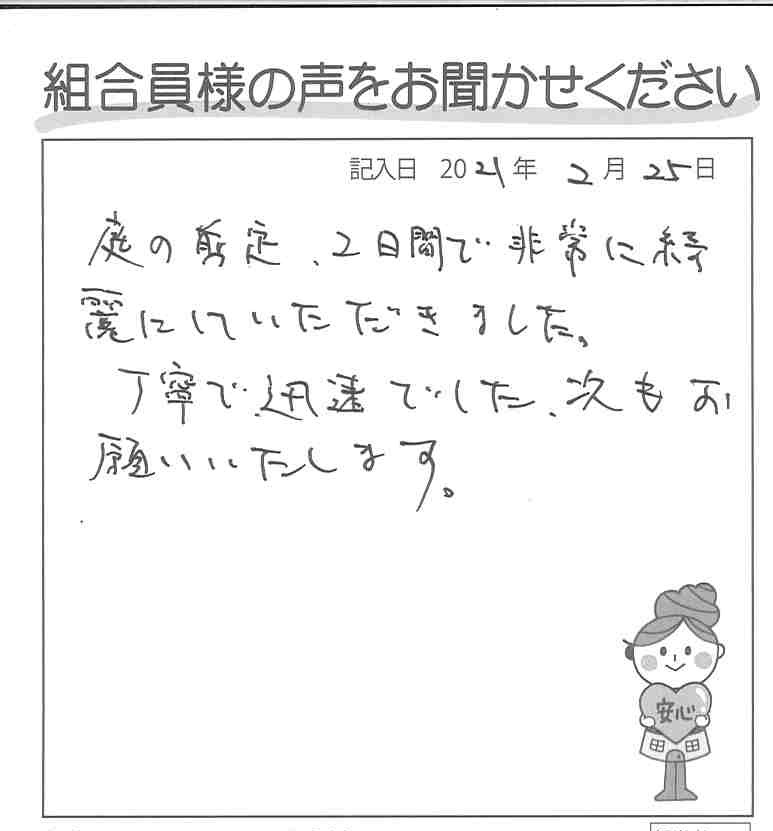 組合員様の声をお聞かせください
記入日 2021年 2月 25日
庭の剪定、2日間で非常に綺
麗にしていただきました。
丁寧で迅速でした、次もお
願いいたします。
安心